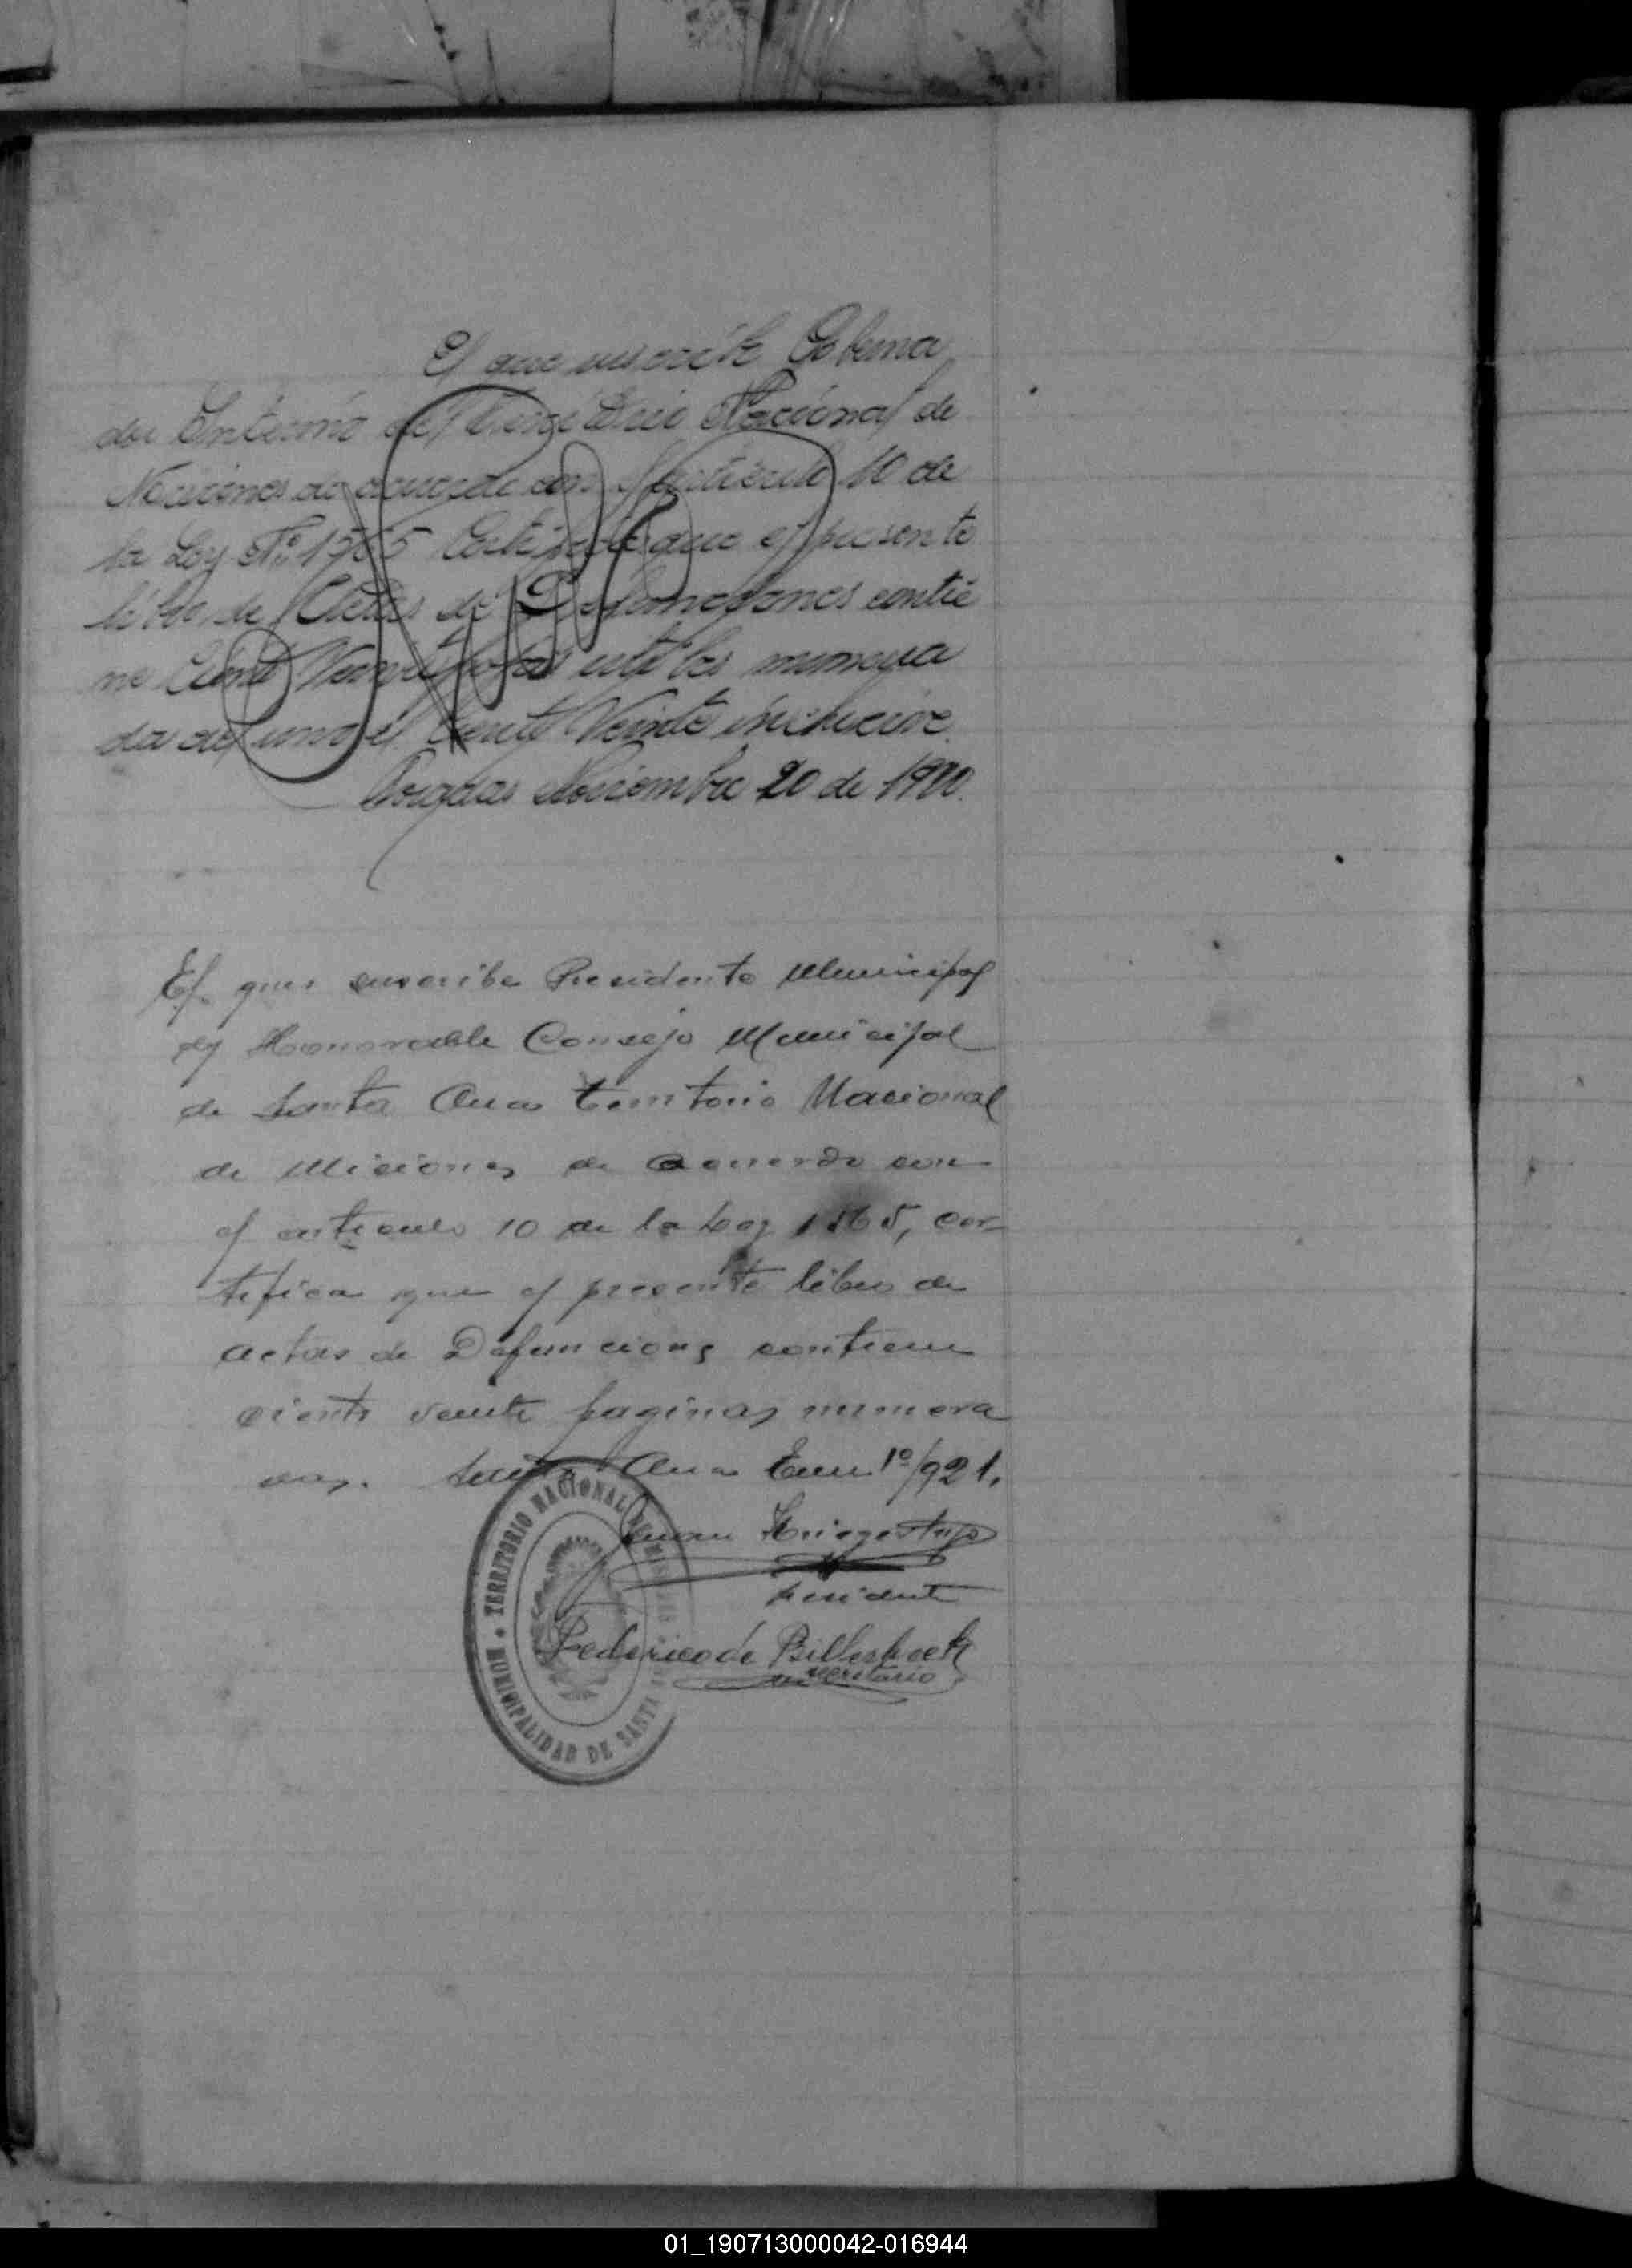 El que suscribe Goberna
dor Interino del Territorio Nacional de
Misiones de acuerdo con el artículo 10 de
la Ley Nº 1565 Certifica que el presente
libro de Actas de Defunciones contie
ne Ciento Veinte fojas utiles numera
da del uno al Ciento Veinte inclusive.
Posadas Noviembre 20 de 1920.
El que suscribe Presidente Municipal
del Honorable Consejo Municipal
de Santa Ana territorio Nacional
de Misiones de acuerdo con
el articulo 10 de la Ley 1565, cer
tifica que el presente libro de
actas de Defunciones contiene
ciento veinte paginas numera
das. Santa Ana Enero 1º/921.
presidente
Federico de
secretario
TERRITORIO NACIONAL DE MISIONES
MUNICIPALIDAD DE SANTA ANA
01_190713000042-016944